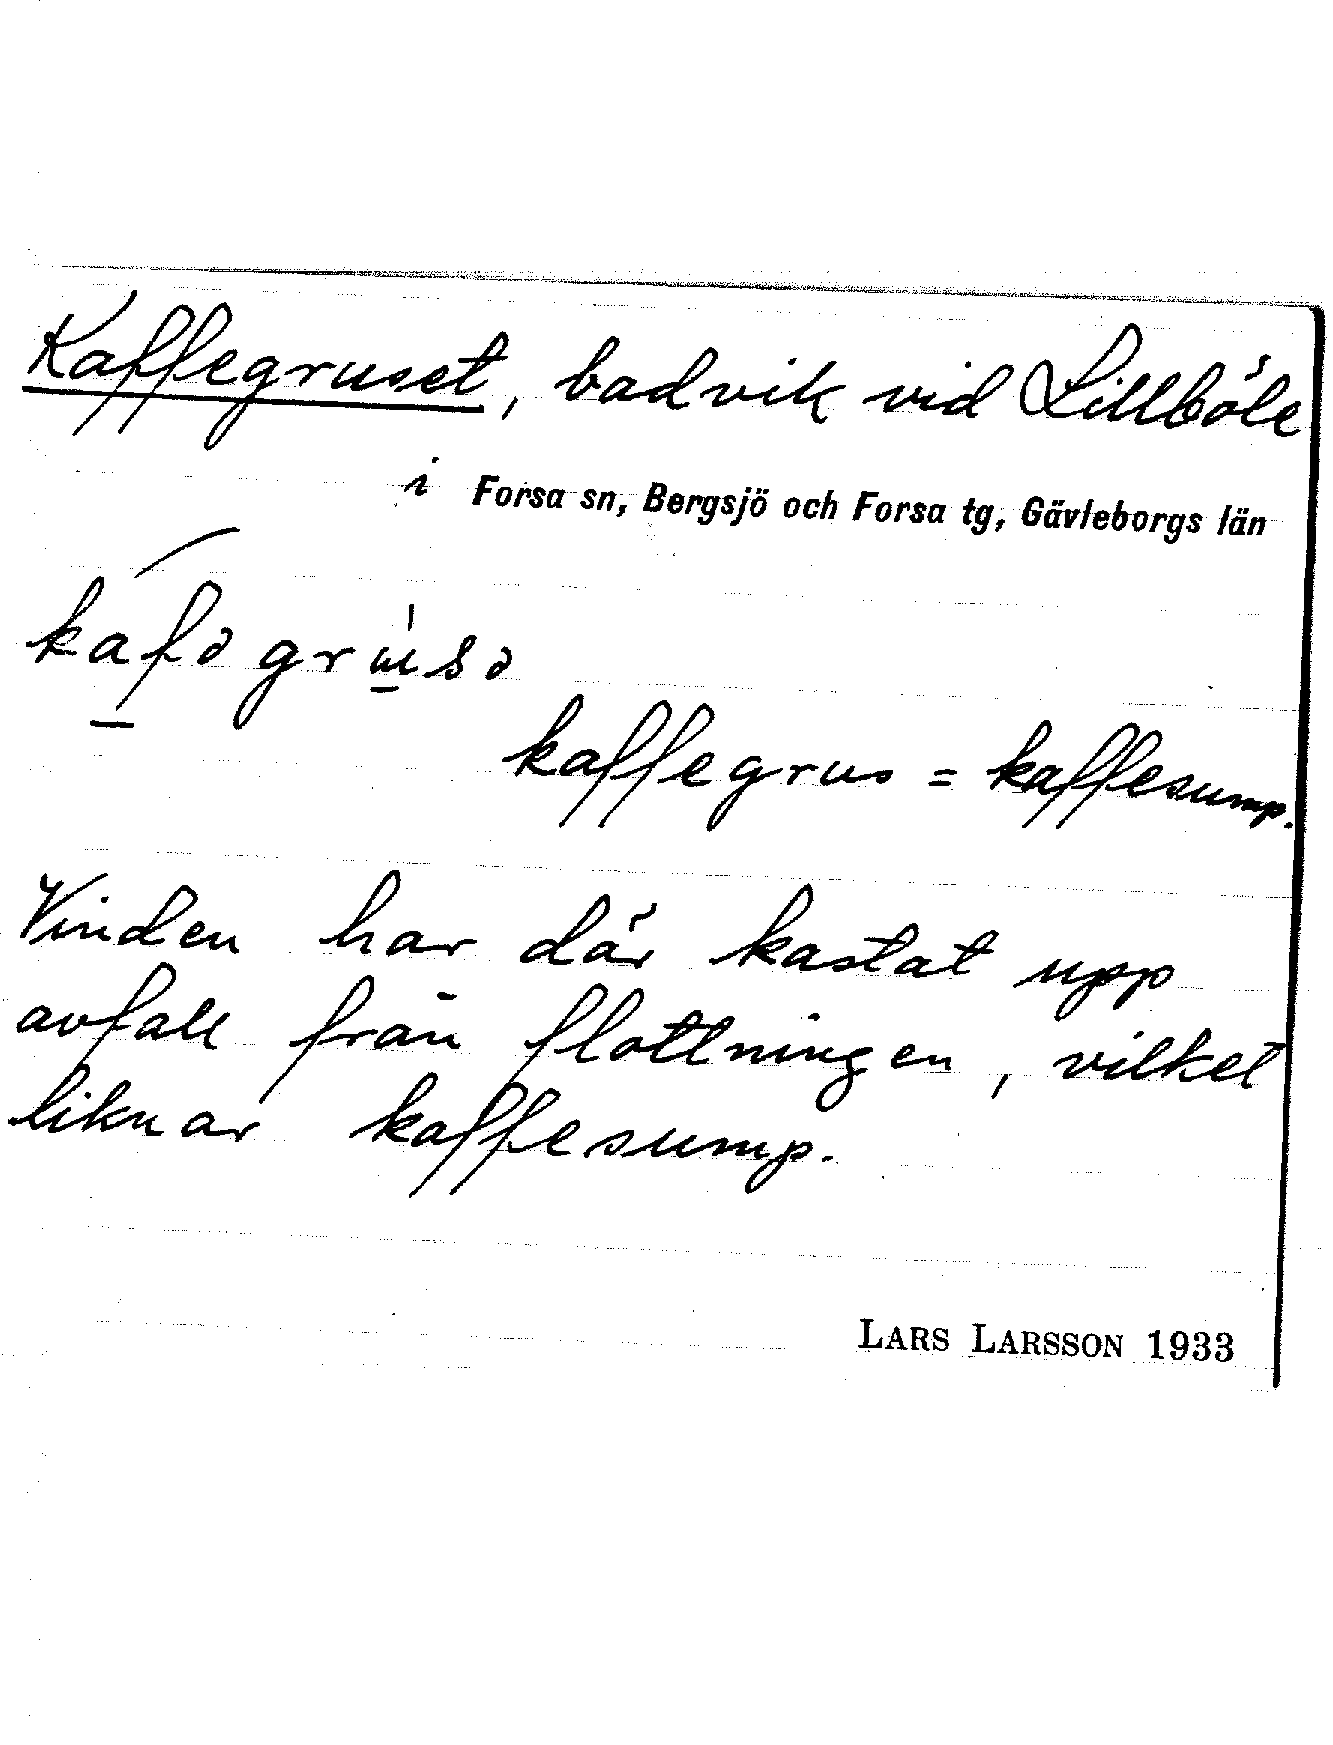 Kaffegruset, badvik vid Lillböle
i Forsa sn, Bergsjö och Forsa tg, Gävleborgs län
kafə grusə
kaffegrus = kaffesump.
Vinden har där kastat upp
avfall från flottningen, vilket
liknar kaffesump.
LARS LARSSON 1933